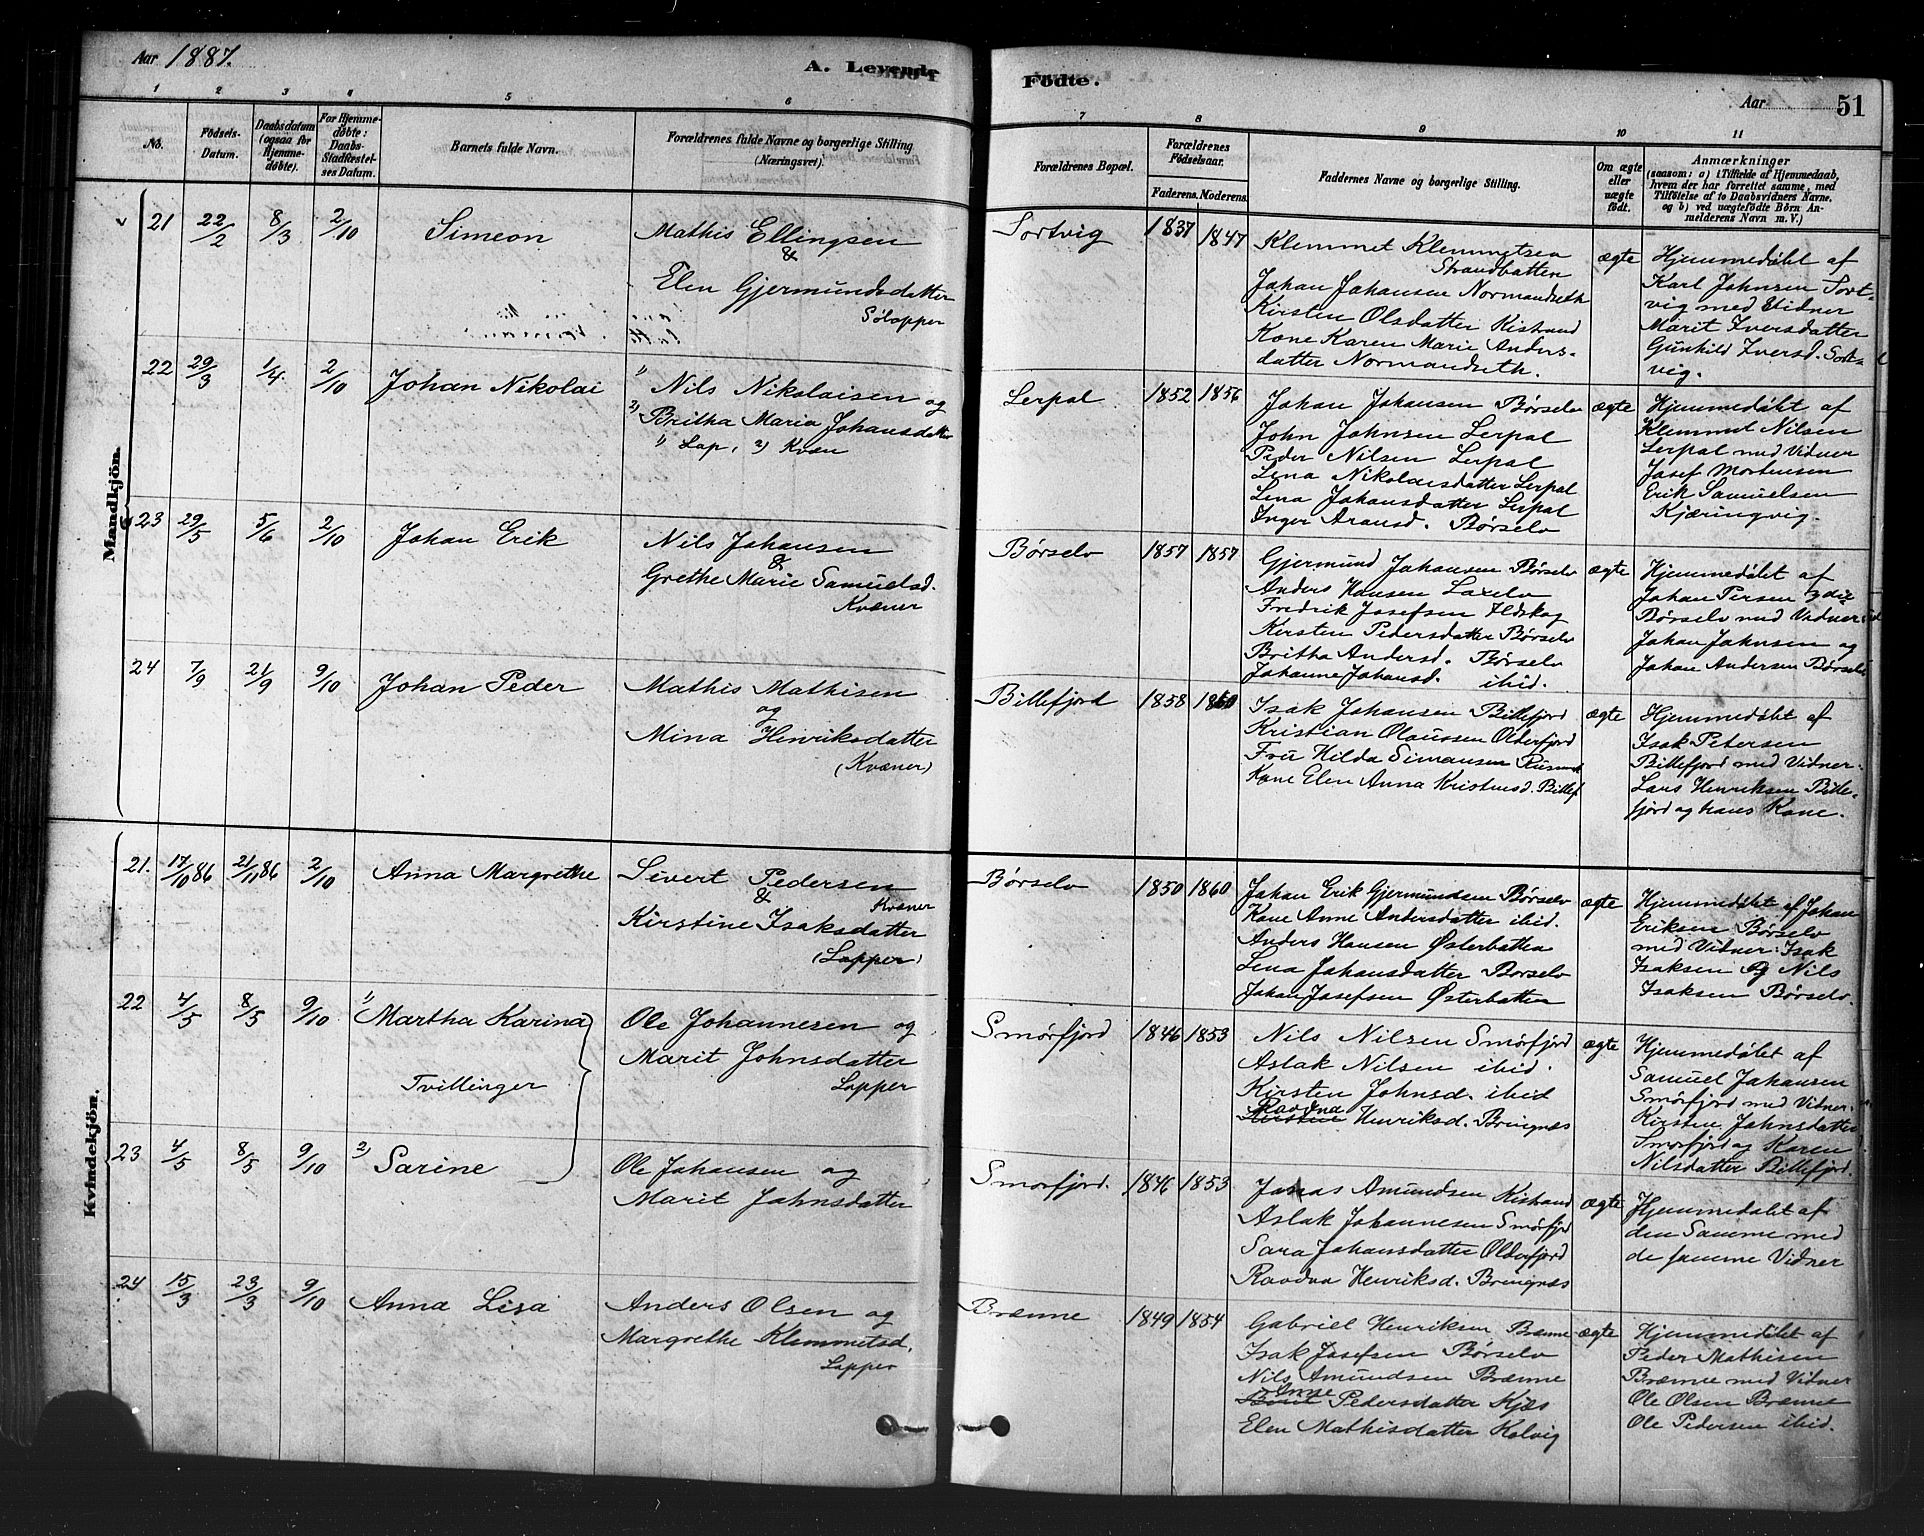 Aar 1887.
A. Levende Fødte.
Aar
51
1
2
3
4
5
6
7
8
9
10
11
No.
Fødsels-
Datum.
Daabsdatum
(ogsaa for
Hjemme-
døbte).
For Hjemme-
døbte:
Daabs-
Stadfæstel-
ses Datum.
Barnets fulde Navn.
Forældrenes fulde Navne og borgerlige Stilling
(Næringsvei).
Forældrenes Bopæl.
Forældrenes
Fødselsaar.
Faderens.
Moderens.
Faddernes Navne og borgerlige Stilling.
Om ægte
eller
uægte
født.
Anmærkninger
(saasom: a) i Tilfælde af Hjemmedaab,
hvem der har forrettet samme, med
Tilføielse af to Daabsvidners Navne,
og b) ved uægtefødte Børn An-
melderens Navn m. V.)
Mandkjön.
21
22/2
8/3
2/10
Simeon
Mathis Ellingsen
&
Elen Gjermundsdatter
Sølapper
Sortvig
1837
1847
Klemmet Klemmetsen
Strandbatten
Johan Johansen Normandseth
Kirsten Olsdatter Kistrand
Kone Karen Marie Anders-
datter Normandseth.
ægte
Hjemmedøbt af
Karl Johnsen Sort-
vig med Vidner
Marit Iversdatter
Gunhild Iversd. Sort-
vig.
22
29/3
1/4
2/10
Johan Nikolai
1) Nils Nikolaisen og
2) Britha Maria Johansdatter
1) Lap, 2) Kvæn
Lerpol
1852
1856
Johan Johansen Børselv
John Johnsen Lerpol
Peder Nilsen Lerpol
Lena Nikolaisdatter Lerpol
Lena Johansdatter Lerpol
Inger Aransd. Børselv
ægte
Hjemmedøbt af
Klemmet Nilsen
Lerpol med Vidner
Josef Mortensen
Erik Samuelsen
Kjæringvig.
23
29/5
5/6
2/10
Johan Erik
Nils Johansen
&
Grethe Marie Samuelsd.
Kvæner
Børselv
1857
1857
Gjermund Johansen Børselv
Anders Hansen Laxelv
Fredrik Josefsen Ildskog
Kirsten Pedersdatter Børselv
Britha Andersd. Børselv
Johanne Johansd. ibid.
ægte
Hjemmedøbt af
Johan Persen
Børselv med Vidner
Johan Johnsen og
Johan Andersen Børselv
24
7/9
21/9
9/10
Johan Peder
Mathis Mathisen
og
Mina Henriksdatter
(Kvæner)
Billefjord
1858
1860
Isak Johansen Billefjord
Kristian Olaussen Olderfjord
Fru Hilda Simonsen
Kone Elen Anna Kristensd. Billef
ægte
Hjemmedøbt af
Isak Petersen
Billefjord med Vidner
Lars Henriksen Bille-
fjord og hans Kone.
Kvindekjön.
21.
17/10 86
21/11 86
2/10
Anna Margrethe
Sivert Pedersen
& Kvæner
Kirstine Isaksdatter
(Lapper)
Børselv
1850
1860
Johan Erik Gjermundsen Børselv
Kone Anne Andersdatter ibid.
Anders Hansen Østerbatten
Lena Johansdatter Børselv
Johan Josefsen Østerbatten
ægte
Hjemmedøbt af Johan
Eriksen Børselv
med Vidner: Isak
Isaksen og Nils
Isaksen Børselv.
22
4/5
8/5
9/10
1) Martha Karina
Tvillinger
Ole Johannesen og
Marit Johnsdatter
Lapper
Smørfjord
1846
1853
Nils Nilsen Smørfjord
Aslak Nilsen ibid.
Kirsten Johnsd. ibid
Raavdna
Kirsten Henriksd. Bringnæs
ægte
Hjemmedøbt af
Samuel Johansen
Smørfjord med Vidner
Kirsten Johnsdatter
Smørfjord og Karen
Nilsdatter Billefjord.
23
4/5
8/5
9/10
2) Sarine
Ole Johansen og
Marit Johnsdatter
Smørfjord.
1846
1853
Jonas Amundsen Kistrand
Aslak Johannesen Smørfjord
Sara Johansdatter Olderfjord
Raavdna Henriksd. Bringnæs
ægte
Hjemmedøbt af
den Samme med
de samme Vidner
24
15/3
23/3
9/10
Anna Lisa
Anders Olsen og
Margrethe Klemmetsd.
Lapper
Brænne
1849
1854
Gabriel Henriksen Brænne
Isak Josefsen Børselv
Nils Amundsen Brænne
Pedersdatter Kjæs
Elen Mathisdatter Kolvig
ægte
Hjemmedøbt af
Peder Mathisen
Brænne med Vidner
Ole Olsen Brænne
Ole Pedersen ibid.